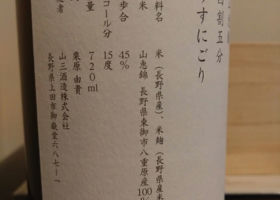 四割五分
うすにごり
料名 米(長野県産)、米麹(長野県産米
米 山恵錦 長野県東御市八重原産100%
歩合 45%
コール分 15度
量 720ml
者 栗原由貴
者 山三酒造株式会社
長野県上田市御嶽堂六八七-一